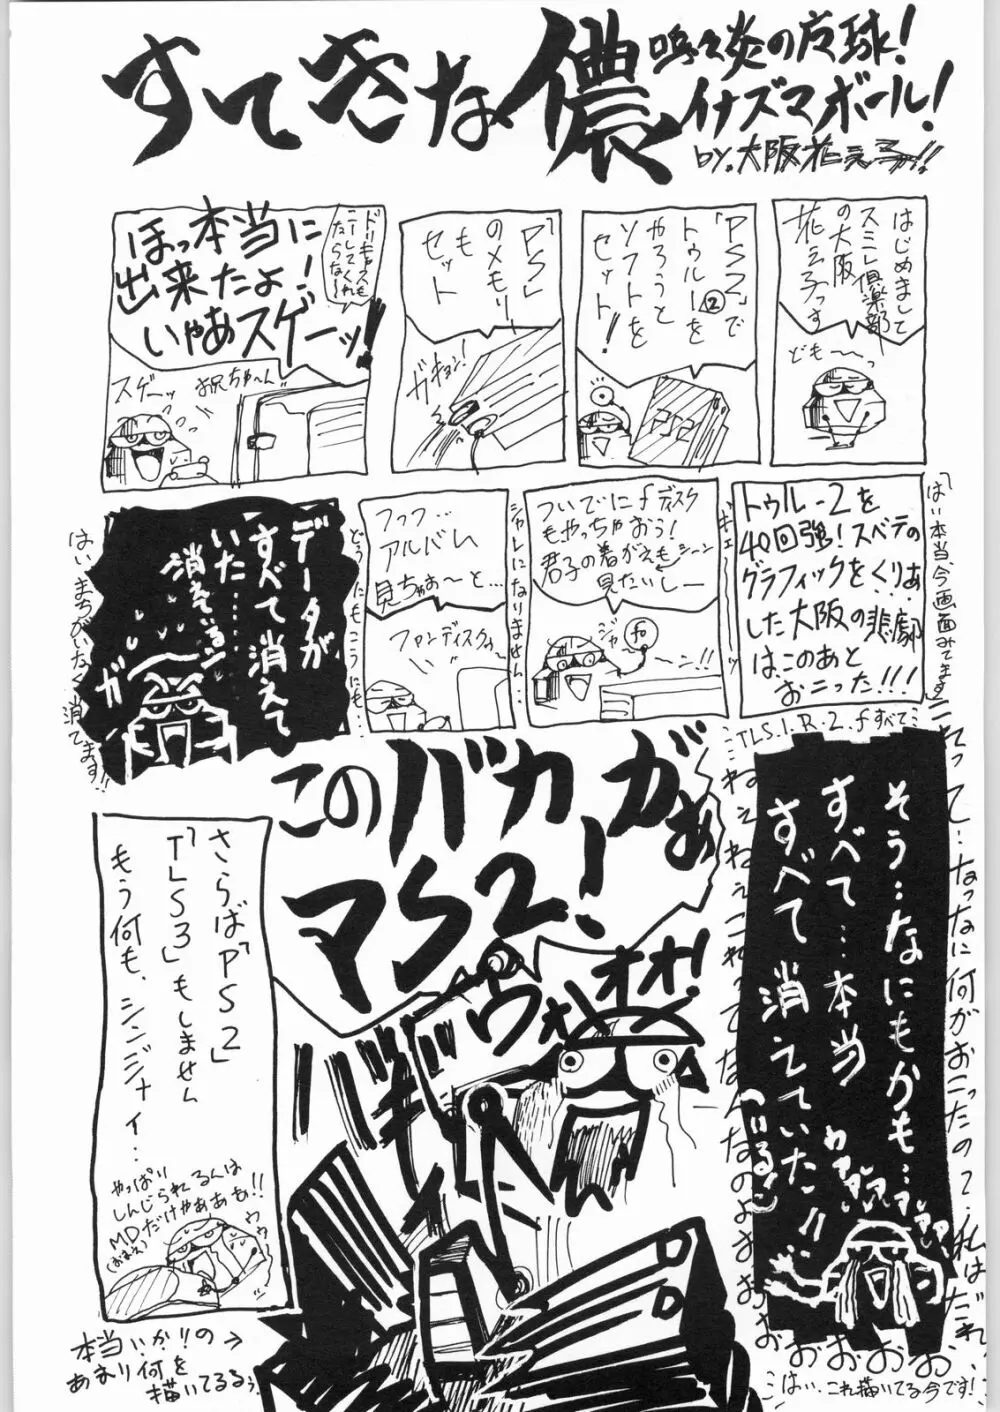 すてきな儂
嗚々炎の皮球!
イナズマボール!
by.大阪花え子っ!!
はじめまして
スミレ倶楽部
の大阪
花え子っす
ども〜っ
「PS2」で
トゥルー②を
やろうと
ソフトを
セット!
PS2
「PS」
のメモリ
も
セット
ガキョン!
ほっ本当に
出来たよ!
いやあスゲーッ!!
ドリキャスも
こーしてくれ
たらな〜
スゲーッ
お兄ちゃ〜ん
「はい本当、今画面みてます」
トゥルー2を
40回強!スベテの
グラフィックをくりあ
した大阪の悲劇
はこのあと
おこった!!!
ついでにfディスク
もやっちゃおう!
君子の着がえもシーン
見たいしー
ジャ
〜ン!!
シャレになりません…
フッフ…
アルバム
見ちゃお〜と…
ファンディスクの〜
どうにもこうにも…
データが
すべて消えて
いた……
消えている…
ガ
はい、まちがいなく消えてます!!
…TLS.1.R.2.fすべて…
そう‥なにもかも…
すべて…本当
すべて消えていた!!
(いる)
わアアアアアアア
これって…なっなに何がおこったの?私はだれ
ねぇねぇねぇこれってなんなのよおおおおおおお
このバカがぁ
マS2!
ヴォオオ!
さらば「PS2」
「TLS3」もしません
もう何も、シンジナイ…
やっぱ
しんじられるんは
MDだけやああぁ!!
(おまえ)
ウウ
本当いかりの→
あまり何を
描いてるろぅ
…はい、これ描いてる今です!